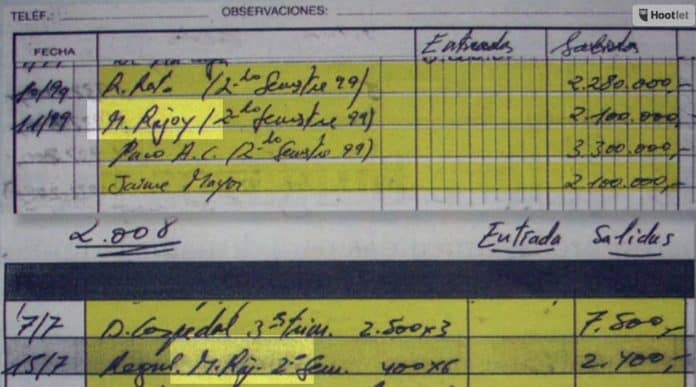 Hootlet
TELÉF.: OBSERVACIONES:
FECHA Entradas Salidas
10/99 R. Rato (2-do Semestre 99) 2.280.000,-
11/99 M. Rajoy (2-do Semestre 99) 2.100.000,-
Paco A.C. (2-do Semestre 99) 3.300.000,-
Jaime Mayor 2.100.000,-
2.008 Entrada Salidas
7/7 D. Cospedal 3er trim. 2.500x3 7.500,-
15/7 M. Raj. 2º Sem. 400x6 2.400,-